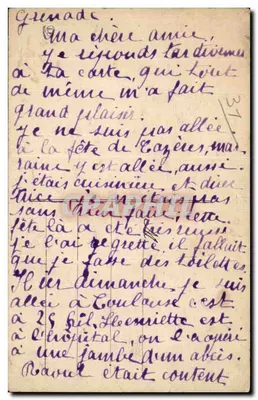 Grenade.
Ma chère amie,
je réponds tardivement
à ta carte, qui tout
de même m'a fait
grand plaisir.
31
Je ne suis pas allée
à la fête de Cazères, mar
raine y est allée, aussi
j'étais cuisinière et dire
pas
sans cette
fête là a été très
je l'ai regretté, il fallait
que je fasse des toilettes.
Hier dimanche je suis
allée à Toulouse c'est
à 25 kil. Henriette est
à l'hôpital, on l'a opéré
à une jambe d'un abcès.
Raoul était content